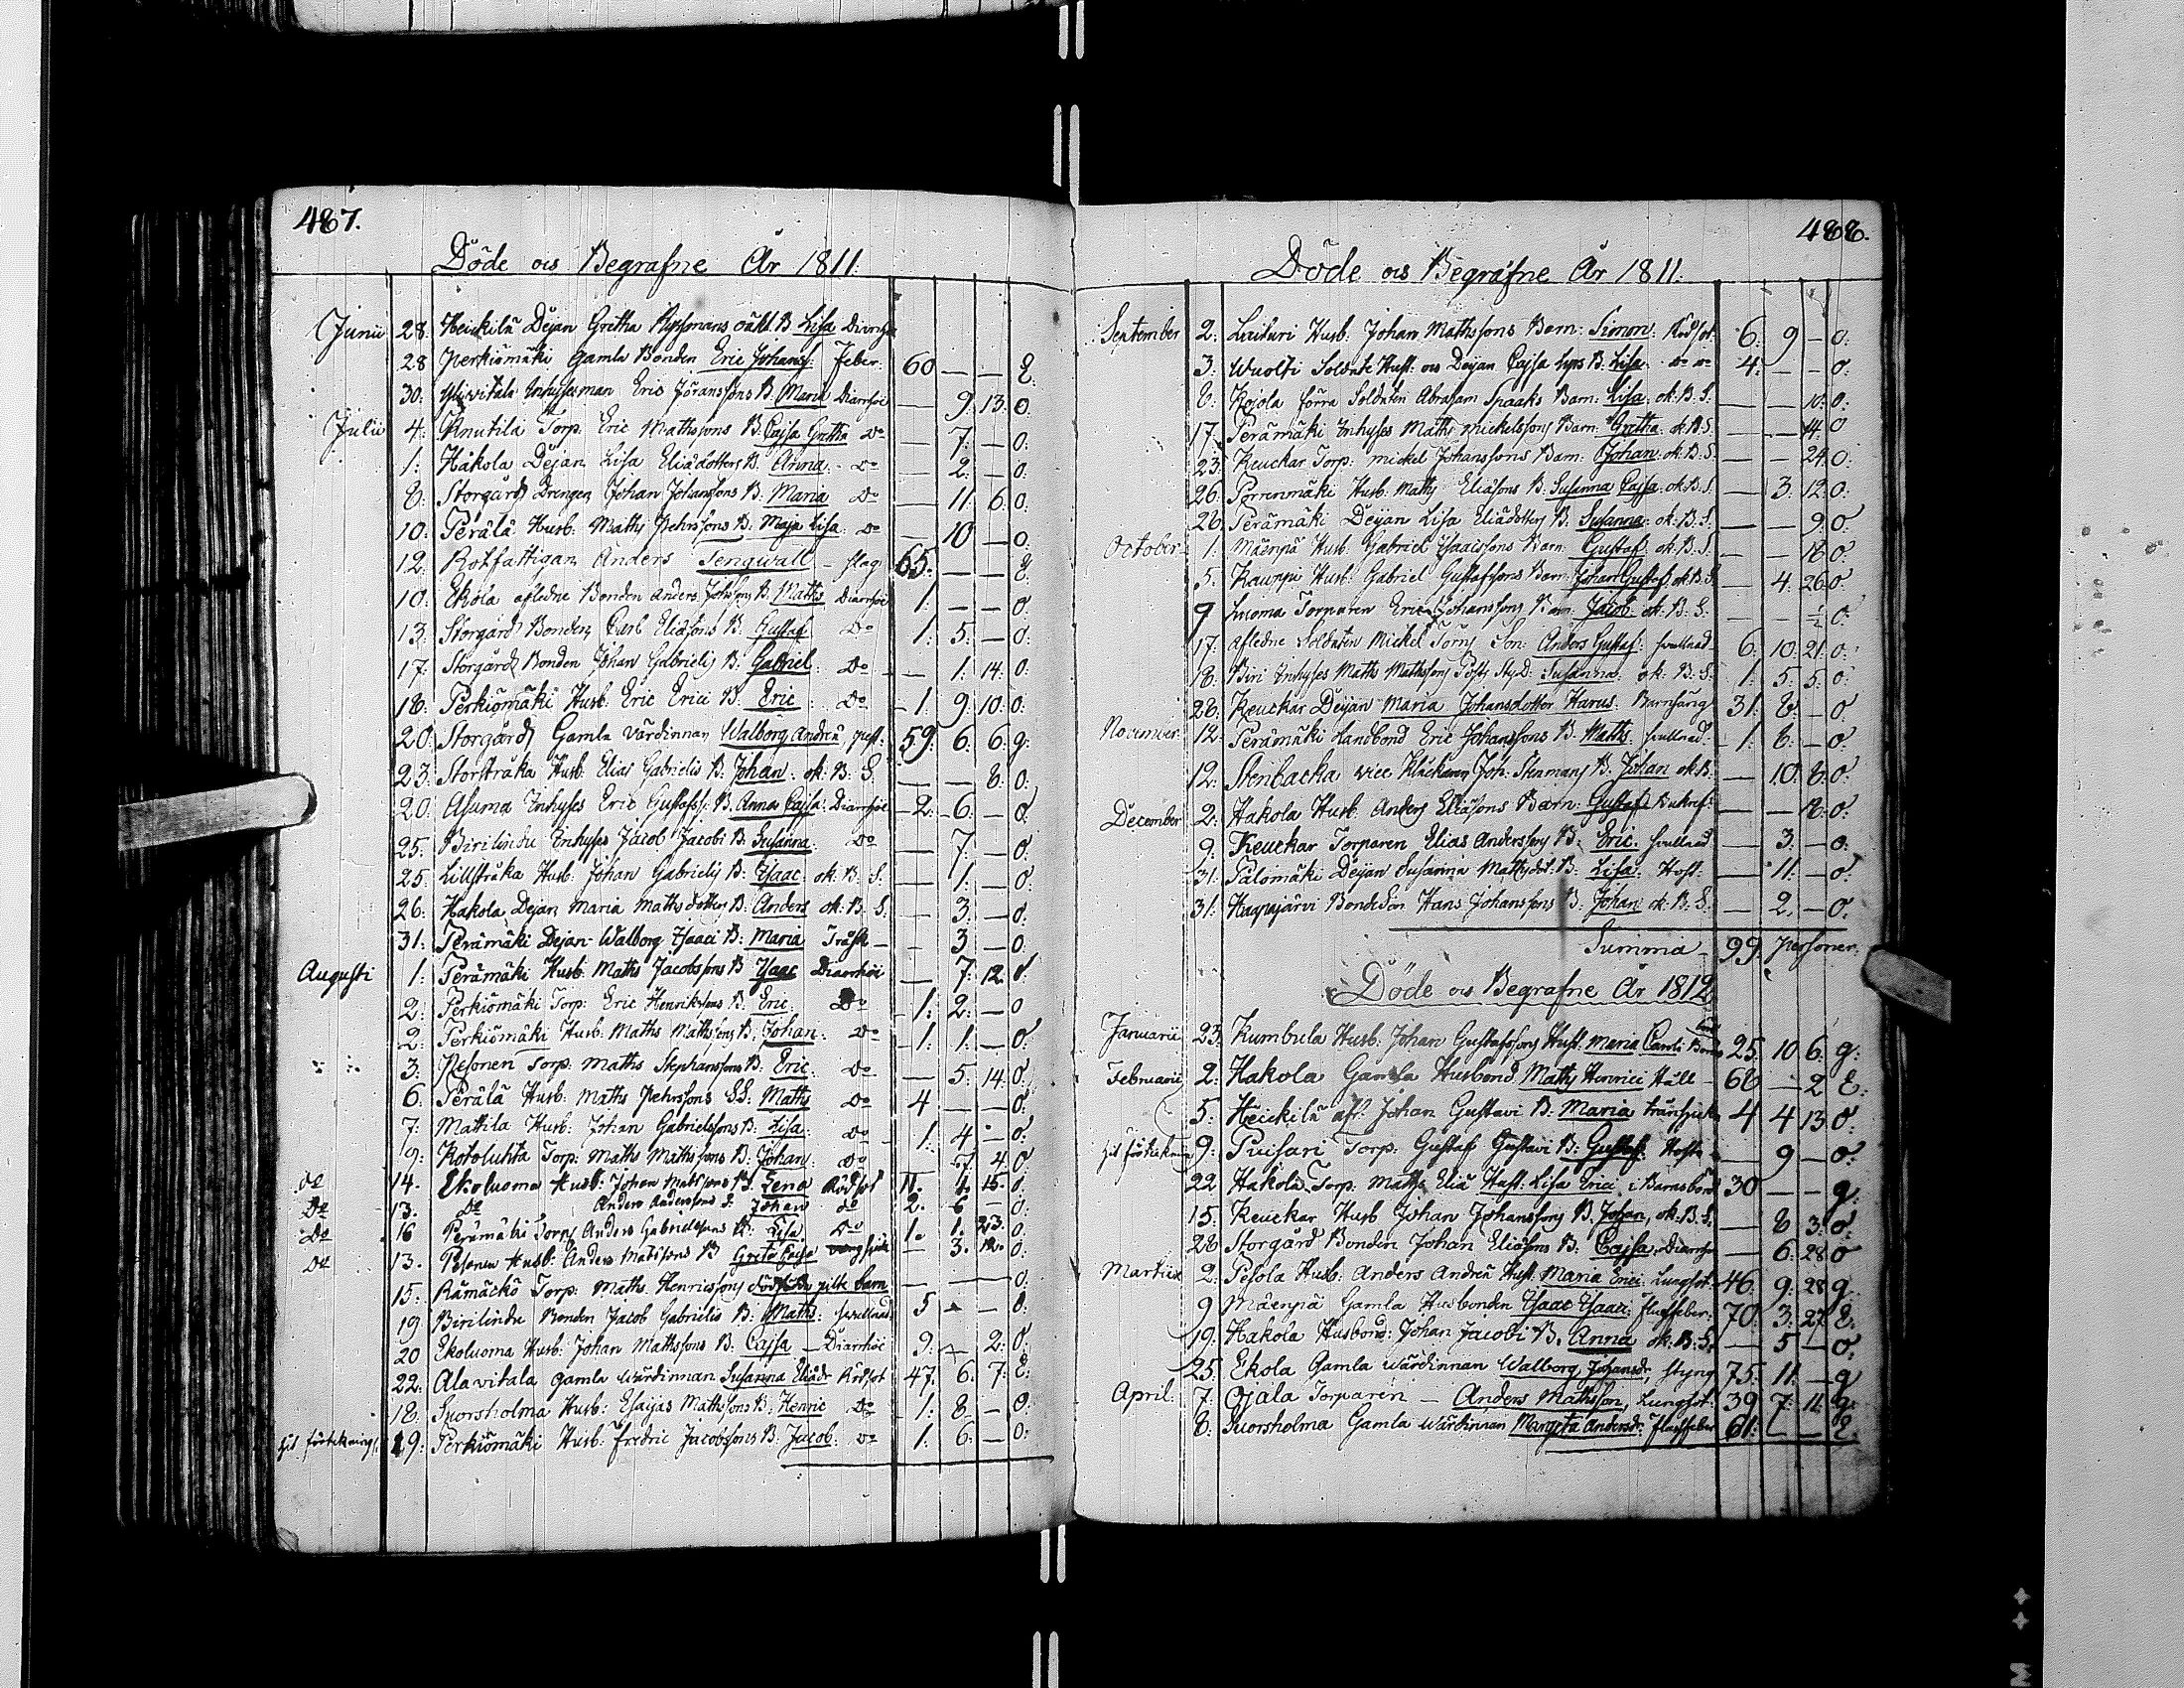 487.
Döde och Begrafne År 1811.
Junii 28. Heickilä Dejan Gretha oäkt B. Lisa Diarrhoe
28 Perkiömäki gamla Bonden Eric Johans: Feber. 60 — — E.
30. Yliwitala Inhysesman Eric Jöranssons B. Maria Diarrhoe — 9. 13. o.
Julii 4. Knutila Torp. Eric Mathssons B. Cajsa Gretha Do — 7. — o.
1. Hakola Dejan Lisa Eliædotters B. Anna. Do — 2. — o.
8. Storgård Drengen Johan Johanssons B. Maria Do — 11. 6. o.
10. Perälä Husb. Maths Pehrssons B. Maja Lisa. Do — 10 — o.
12. Rotfattigan Anders Tengwall – slag 65. — — E.
10. Ekola afledne Bonden Anders Johssons B. Maths Diarrhoe 1. — — o.
13. Storgård Bonden Carl Eliæsons B. Gustaf Do 1. 5. — o.
17. Storgård Bonden Johan Gabrielis B. Gabriel. Do — 1. 14. o.
18. Perkiömäki Husb. Eric Erici B. Eric. Do 1. 9. 10. o.
20. Storgård Gamla Värdinnan Walborg Andreæ 59. 6. 6. g.
23. Storstråka Husb. Elias Gabrielis B. Johan. ok. B. S. — — 8. o.
20. Asuma Inhyses Eric Gustafss. B. Anna Cajsa. Diarrhoe 2. 6. — o.
25. Birilindu Inhyses Jacob Jacobi B. Susanna. Do — 7. — o.
25. Lillstråka Husb. Johan Gabrielis B. Isaac. ok. B. S. — 1. — o.
26. Hakola Dejan Maria Mathsdotters B. Anders ok. B. S. — 3. — o.
31. Perämäki Dejan Walborg Isaaci B. Maria Tråsk — — 3 — o.
Augusti 1. Perämäki Husb. Maths Jacobssons B. Isaac Diarrhoe — 7. 12. o.
2. Perkiömäki Torp. Eric Henrikssons B. Eric. Do 1. 2. — o
2. Perkiömäki Husb. Maths Mathssons B. Johan. Do 1. 1. — o.
3. Pesonen Torp. Maths Stephanssons B. Eric. Do — 5. 14. o.
6. Perälä Husb. Maths Pehrssons Maths Do 4 — — o.
7. Mattila Husb. Johan Gabrielssons B. Lisa. Do 1. 4. — o.
9. Kotoluhta Torp. Maths Mathssons B. Johan. Do — 7. 4. o.
do 14. Ekoluoma Husb. Johan Matssons B. Lena Rödsot 11. 1. 15. o.
Do 13. Do Anders Anderssons S. Johan do 2. 6 — o.
Do 16 Perämäki Torp. Anders Gabrielssons B. Lisa. Do 1. 1. 23. o.
Do 13. Pesonen Husb. Anders Matssons B Greta Cajsa — 3. 12. o.
15. Rämäckö Torp. Maths Henricssons dödfödda gilte barn — — — o.
19. Birilindu Bonden Jacob Gabrielis B. Maths. Swullnad 5 — — o.
20 Ekoluoma Husb. Johan Mathssons B. Cajsa — Diarrhoe 9. — 2. o.
22. Alavitala gamla wärdinnan Susanna Eliædr Rödsot 47. 6. 7. E.
18. Suorsholma Husb. Esaijas Mathssons B. Henric Do 1. 8. — o.
til förtekning 19. Perkiömäki Husb. Fredric Jacobssons B. Jacob. Do 1. 6. — o.
488.
Döde och Begrafne År 1811.
September 2. Luituri Husb. Johan Mathssons Barn. Simon. Rödsot. 6. 9 — o.
3. Wuolti Soldate Hust. och Deijan Cajsa B. Lisa. do do 4. — — o.
8. Kojola förra Soldaten Abraham Spaaks Barn. Lisa. ok. B. S. — — 10. o.
17. Perämäki Inhyses Maths Mickelssons Barn. Gretha. ok. B. S. — — 14. o
23. Keuckar Torp. Mickel Johanssons Barn. Johan. ok. B. S. — — 24. o.
26. Porrenmäki Husb. Maths Eliæsons B. Susanna Cajsa. ok. B. S. — 3. 12. o.
28. Perämäki Deijan Lisa Eliædotters B. Susanna. ok. B. S. — — 9. o.
October 1. Mäenpä Husb. Gabriel Isaacssons Barn. Gustaf. ok. B. S. — — 18. o.
5. Kaunpi Husb. Gabriel Gustafssons Barn. Johan Gustaf. ok. B. S. — 4. 26. o.
9 Luoma Torparen Eric Johanssons Barn. Jacob. ok. B. S. — — ½ o.
17. afledne Soldaten Mickel Törns Son. Anders Gustaf. swullnad 6. 10. 21. o.
18. Biri Inhyses Maths Mathssons D. Susanna. ok. B. S. 1. 5. 5. o.
28. Keuckar Deijan Maria Johansdotter Harus. Barnsäng 31. 8. — o.
November 12. Perämäki Landbond Eric Johanssons B. Maths. swullnad 1. 6. — o.
12. Stenbacka vice Klåckaren Joh. Stenmans B. Johan ok. B. — 10. 8. o.
December 2. Hakola Husb. Anders Eliæsons Barn. Gustaf. Bukref. — — 18. o.
9. Keuckar Torparen Elias Anderssons B. Eric. swullnad — 3. — o.
31. Palomäki Deijan Susanna Mathsdot. B. Lisa. Host. — 11. — o.
31. Haapajärvi Bondeson Hans Johanssons B. Johan. ok. B. S. — 2. — o.
Summa — 99. Personer.
Döde och Begrafne År 1812
Januarii 23. Kumbula Husb. Johan Gustafssons Hust. Maria Caroli 25. 10 6. g.
Februarii 2. Hakola Gamla Husbond Maths Henrici Håll — 68 — 2 E.
5. Heickilä afl. Johan Gustavi B. Maria 4 4 13 o.
til förtekning 9. Puisari Torp. Gustaf Gustavi B. Gustaf. Hosta — 9 — o.
22 Hakola Torp. Maths Eliæ Hust. Lisa Erici i Barnsbörd 30 — — g.
15. Keuckar Husb Johan Johanssons B. Johan, ok. B. S. — 8 3. o.
28 Storgård Bonden Johan Eliæsons B. Cajsa. Diarrhoe — 6. 28 o
Martii 2. Pesola Husb. Anders Andreæ Hust. Maria Erici Lungsot. 46. 9. 28. g.
9. Mäenpää Gamla Husbonden Isaac Isaaci. flussfeber. 70. 3. 27. E.
19. Hakola Husbond. Johan Jacobi B. Anna ok. B. S. — 5 — o.
25. Ekola Gamla wärdinnan Walborg Johansdr, styng 75. 11. — g
April. 7. Ojala Torparen — Anders Mathsson, Lungsot. 39 7. 11. g.
8. Suorsholma Gamla wärdinnan Margeta Andersdr. flussfeber 61. — — E.